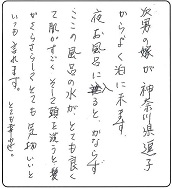 次男の嫁が神奈川県逗子
からよく泊に来ます。
夜お風呂に入ると、かならず
ここの風呂の水が、とても良く
て肌がすごく、そして頭を洗うと髪
がさらさらしてとても気持いいと
いつもされます。
とても幸せ。